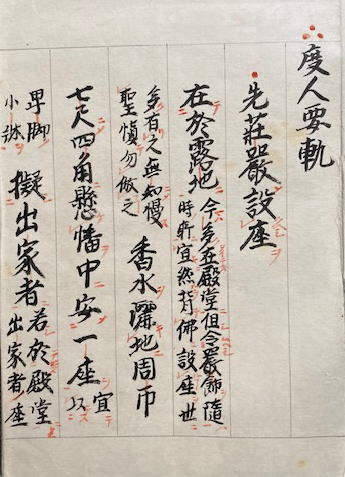 度人要軌
先莊嚴設座
在於露地
今多在殿堂但令嚴飾隨
時所宜然背佛設座世
多有之無知慢
聖慎勿倣之
香水灑地周帀
七尺四角懸幡中安一座
宜
以
卑脚
小牀
擬出家者
若於殿堂
出家者座